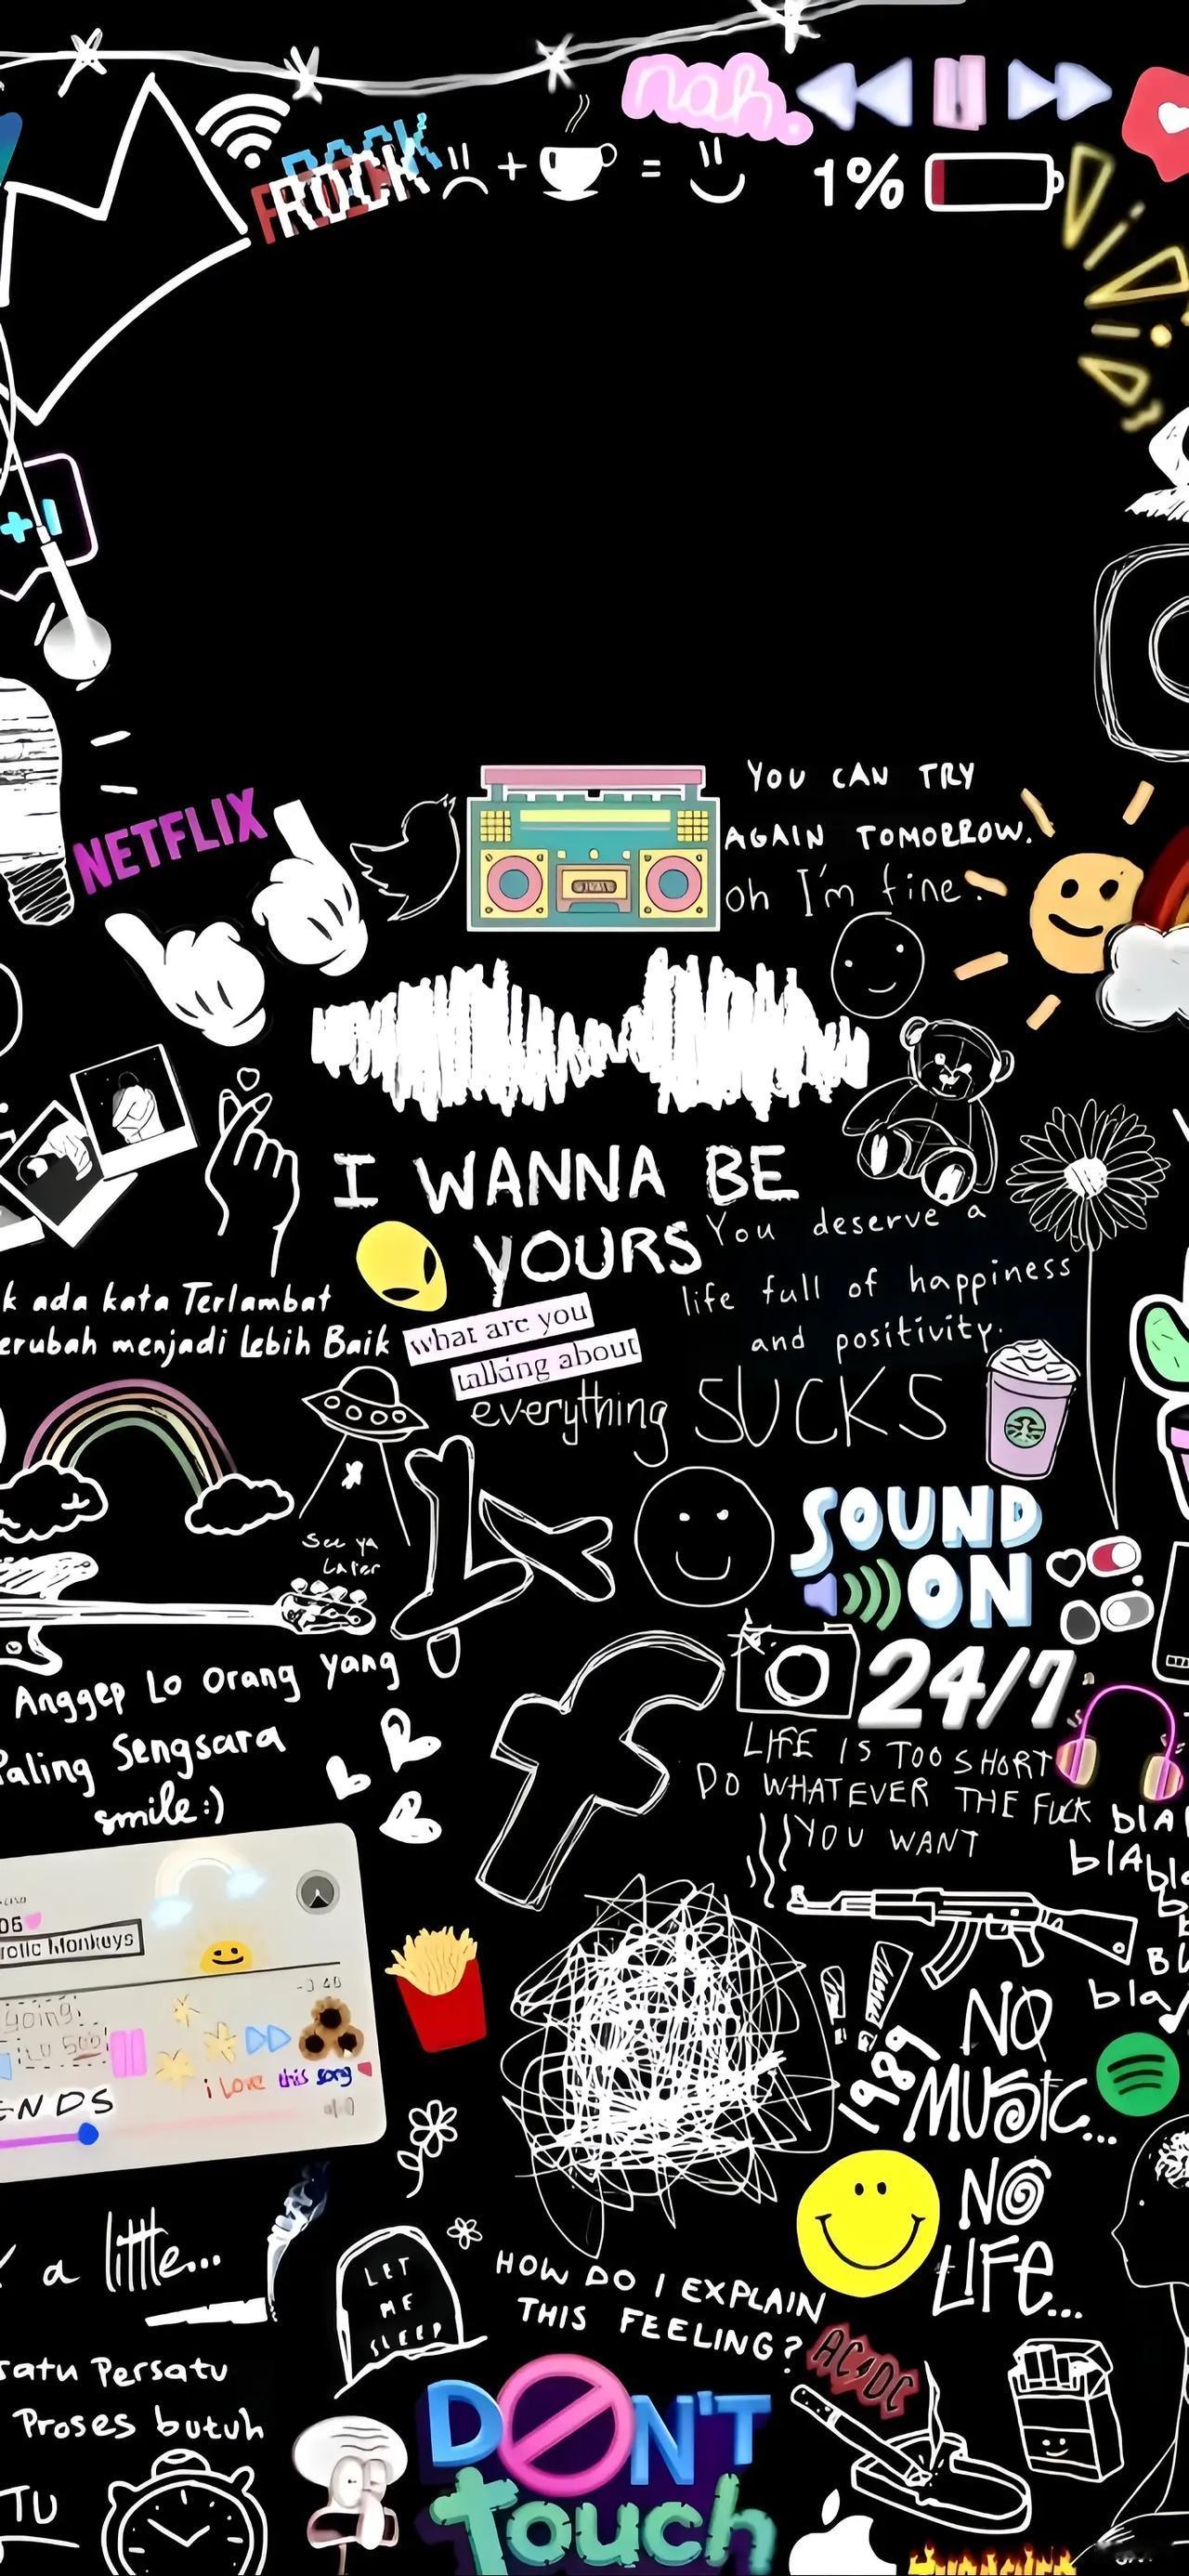 nah.
ROCK
+ =
1%
NETFLIX
YOU CAN TRY
AGAIN TOMORROW.
oh I'm fine.
I WANNA BE
YOURS
You deserve a
life full of happiness
and positivity.
k ada kata Terlambat
erubah menjadi Lebih Baik
what are you
talking about
everything SUCKS
See ya
Later
SOUND
ON
24/7
Anggep Lo Orang yang
Paling Sengsara
smile:)
LIFE IS TOO SHORT
DO WHATEVER THE FUCK
YOU WANT
blA
blA
bla
bla
06
Monkeys
going
i Love this song
ENDS
1989
NO
MUSIC...
NO
LIFE...
a little...
LET
ME
SLEEP
HOW DO I EXPLAIN
THIS FEELING?
AC DC
satu Persatu
Proses butuh
TU
DON'T
Touch